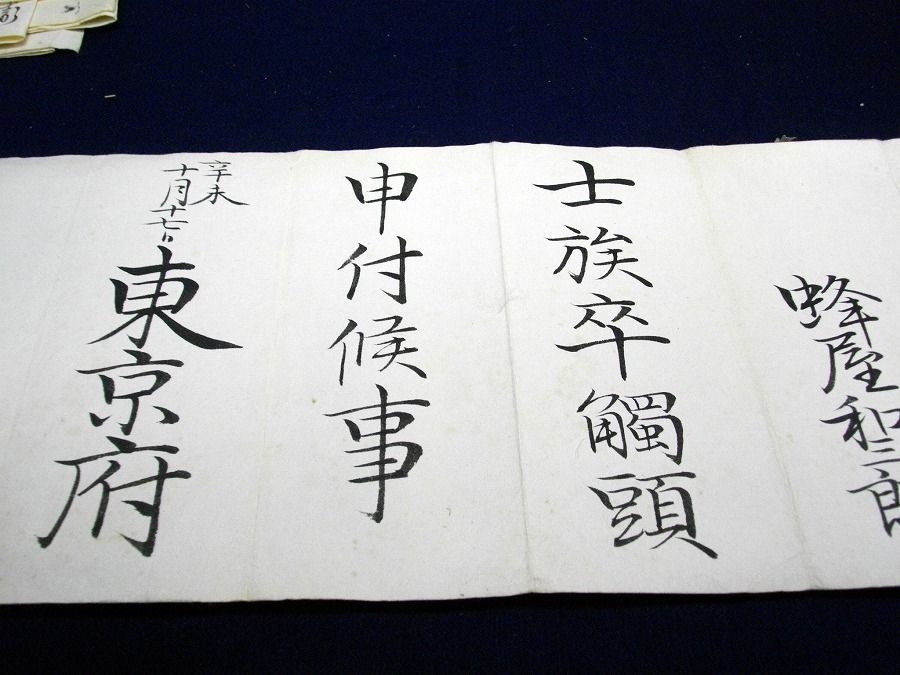 蜂屋和三郎
士族卒觸頭
申付候事
辛未
十月十七日
東京府